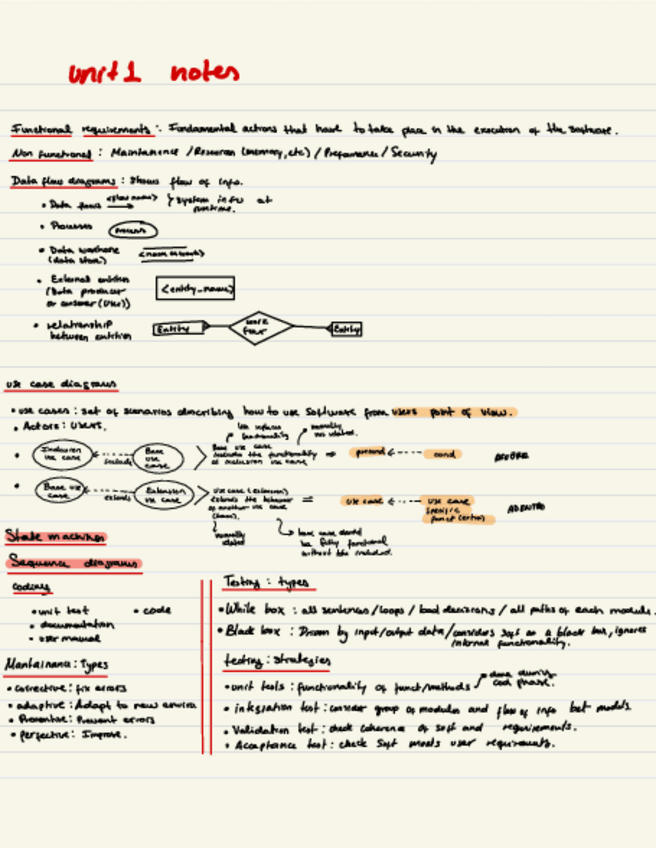 unit1 notes
Functional requirements: Fundamental actions that have to take place in the execution of the software.
Non functional: Maintainence /Resources (memory, etc) / Preformance / Security
Data flow diagrams: Shows flow of info.
• Data flows <flow name> system info at
runtime.
• Processes process
• Data warehouse
(data store)
• External entities <entity_name>
(Data producer
or consumer (User))
• relationship Entity Entity
between entities
use case diagrams
• use cases: set of scenarios describing how to use software from users point of view.
• Actors: USERS.
• Inclusion use case includes Base use case
Base use case
includes the functionality
of inclusion use case
• Base use case extends Extension use case
use case (extension)
extends the behavior
of another use case
(base).
use case use case
normally
base case should
be fully functional
without the included.
State machines
Sequence diagrams
coding
• unit test • code
• documentation
• user manual
Mantainance: Types
• corrective: fix errors
• adaptive: Adapt to new enviro
• Preventive: Prevent errors
• perfective: Improve.
Testing: types
• White box: all sentences/loops / bool decisions / all paths of each module.
• Black box: Driven by input/output data/considers soft as a black box, ignores
internal functionality.
testing: strategies
• unit tests: functionality of funct/methods done during
cod phase.
• integration test: consider group of modules and flow of info bet models.
• Validation test: check coherence of soft and requirements.
• Acceptance test: check soft meets user requirments.